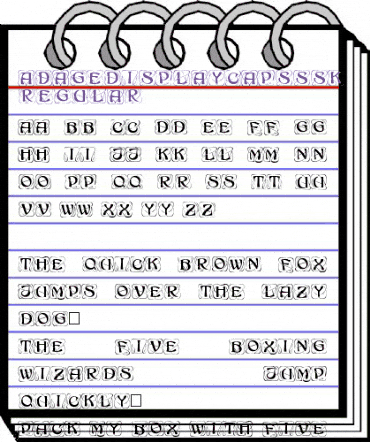 ADAGEDISPLAYCAPSSSK
REGULAR
AA BB CC DD EE FF GG
HH II JJ KK LL MM NN
OO PP QQ RR SS TT UU
VV WW XX YY ZZ
THE QUICK BROWN FOX
JUMPS OVER THE LAZY
DOG□
THE FIVE BOXING
WIZARDS JUMP
QUICKLY□
PACK MY BOX WITH FIVE